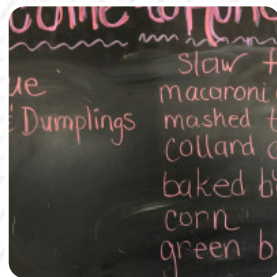 come to
ue
Dumplings
slaw
macaroni
mashed
collard
baked
corn
green